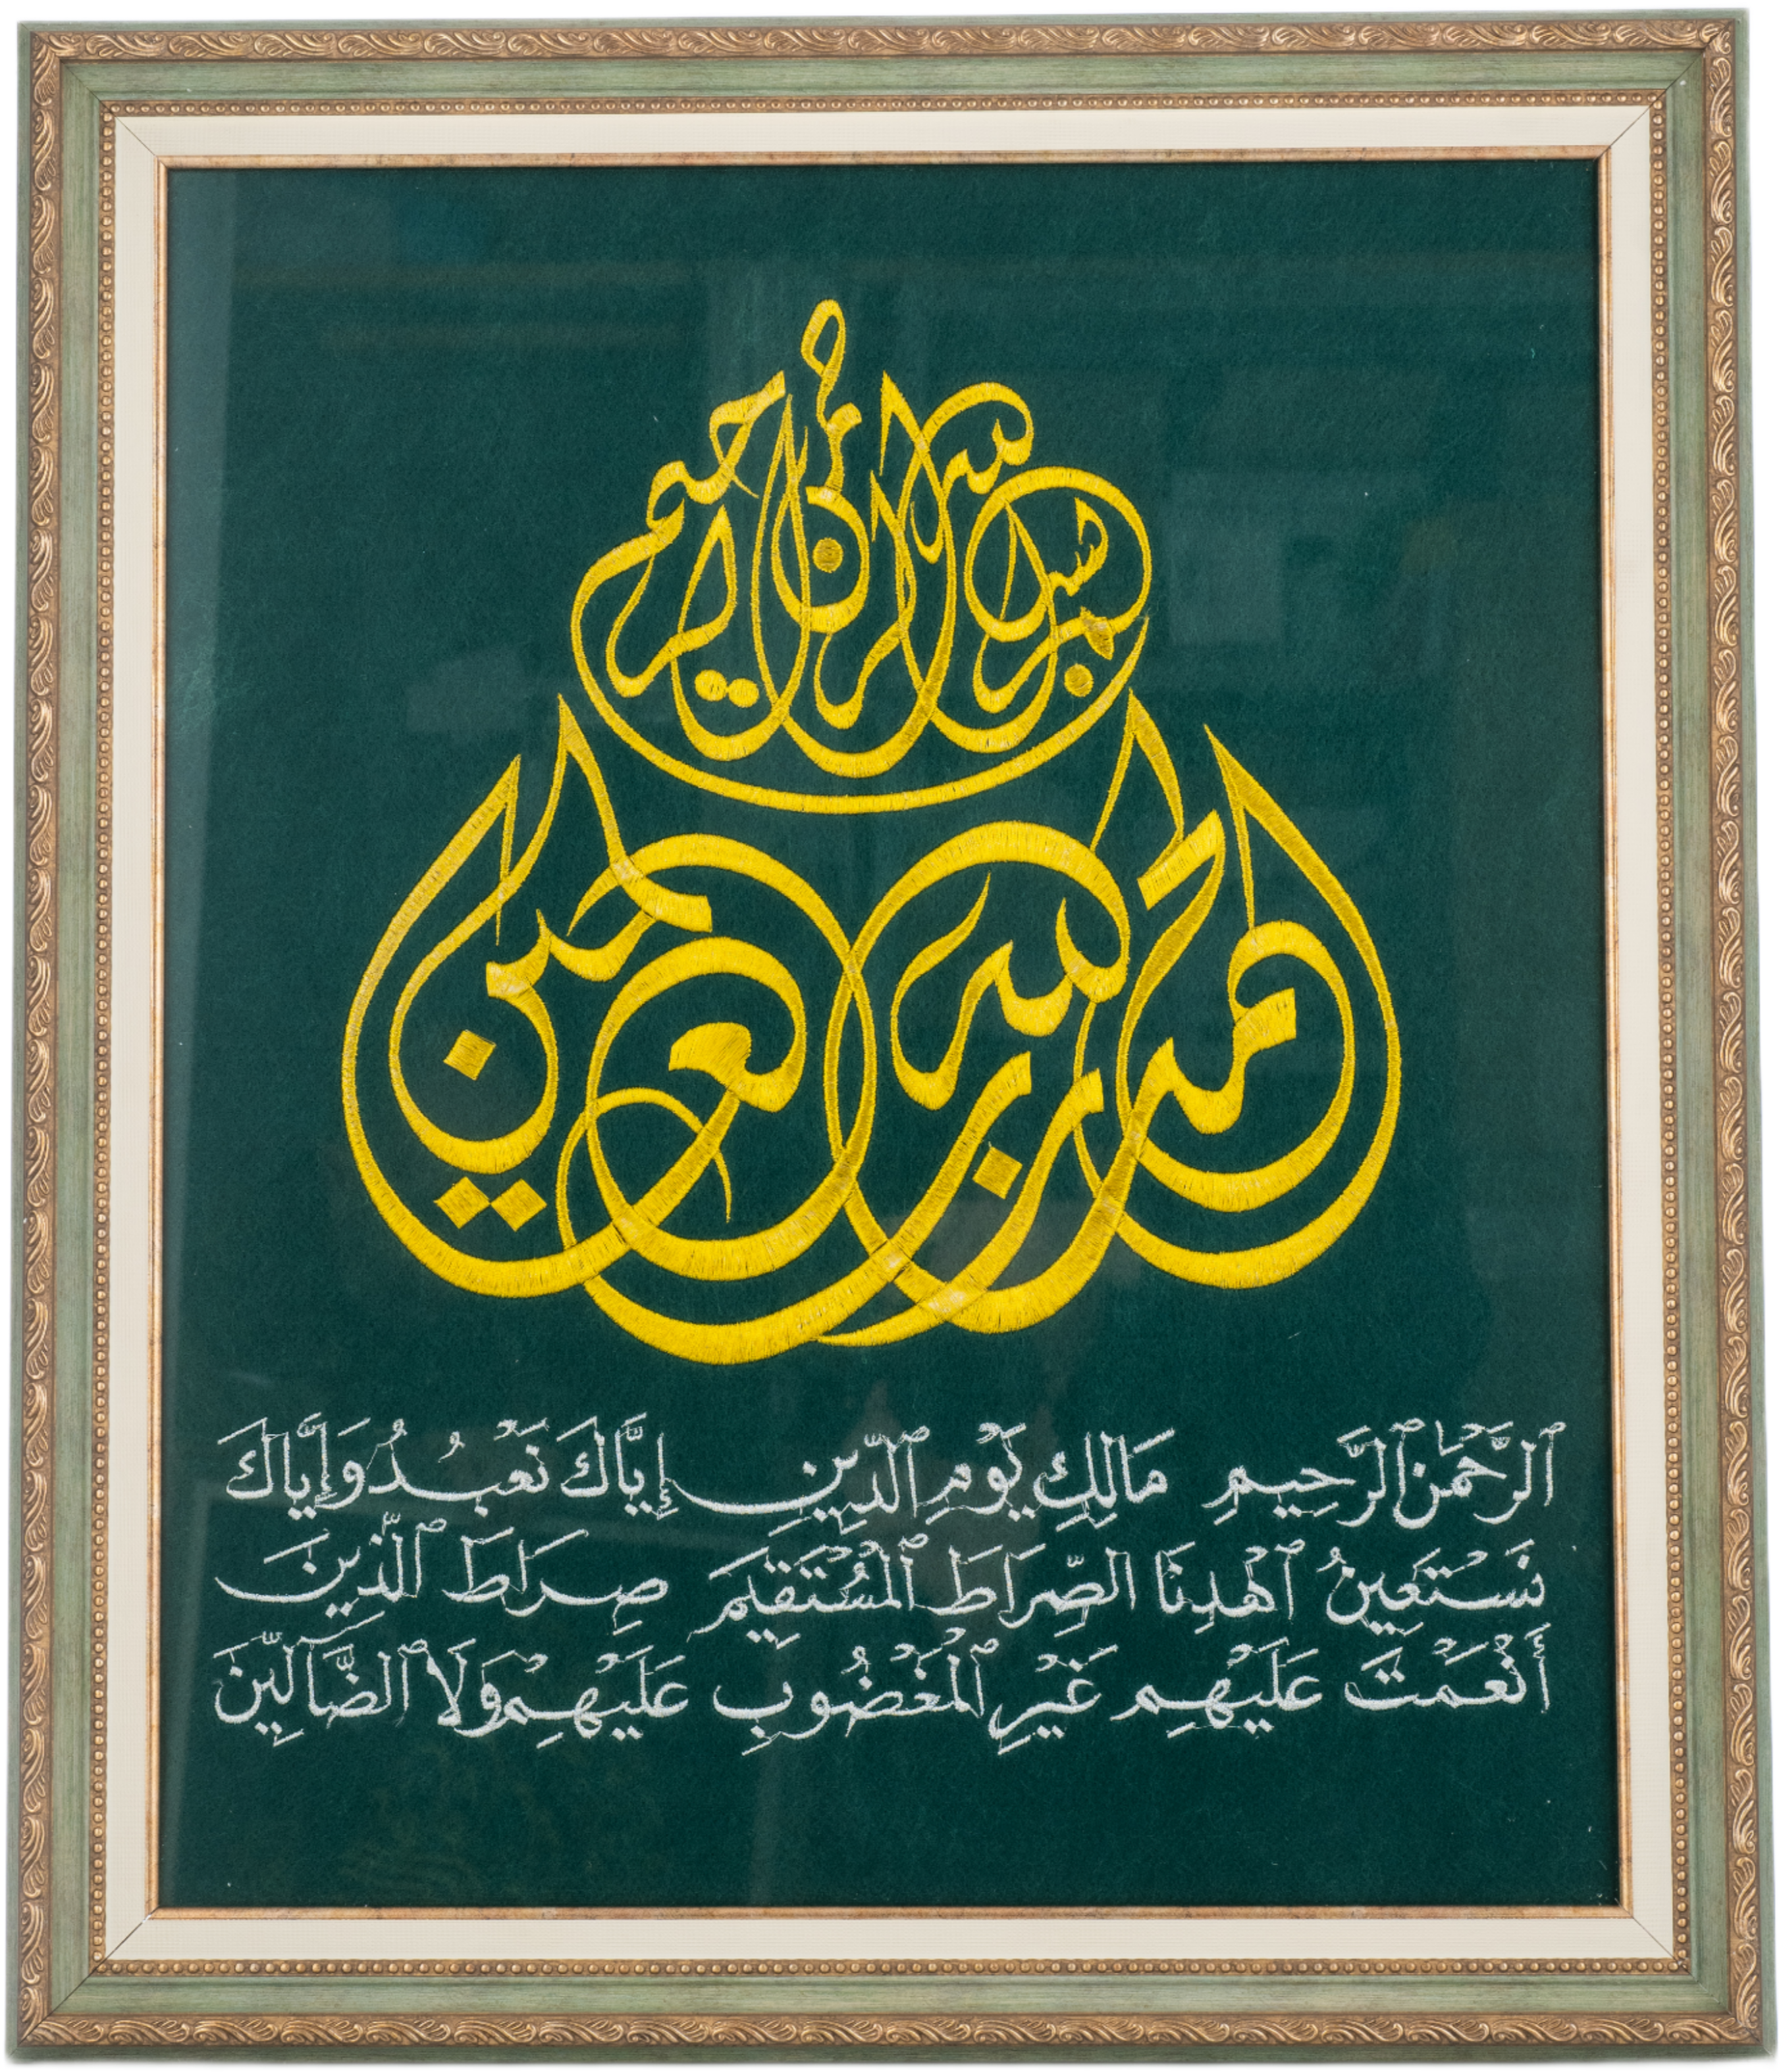 بسم الله الرحمن الرحيم
الحمد لله رب العالمين
ٱلرَّحْمَٰنِ ٱلرَّحِيمِ مَالِكِ يَوْمِ ٱلدِّينِ إِيَّاكَ نَعْبُدُ وَإِيَّاكَ
نَسْتَعِينُ ٱهْدِنَا الصِّرَاطَ ٱلْمُسْتَقِيمَ صِرَاطَ ٱلَّذِينَ
أَنْعَمْتَ عَلَيْهِمْ غَيْرِ ٱلْمَغْضُوبِ عَلَيْهِمْ وَلَا ٱلضَّالِّينَ